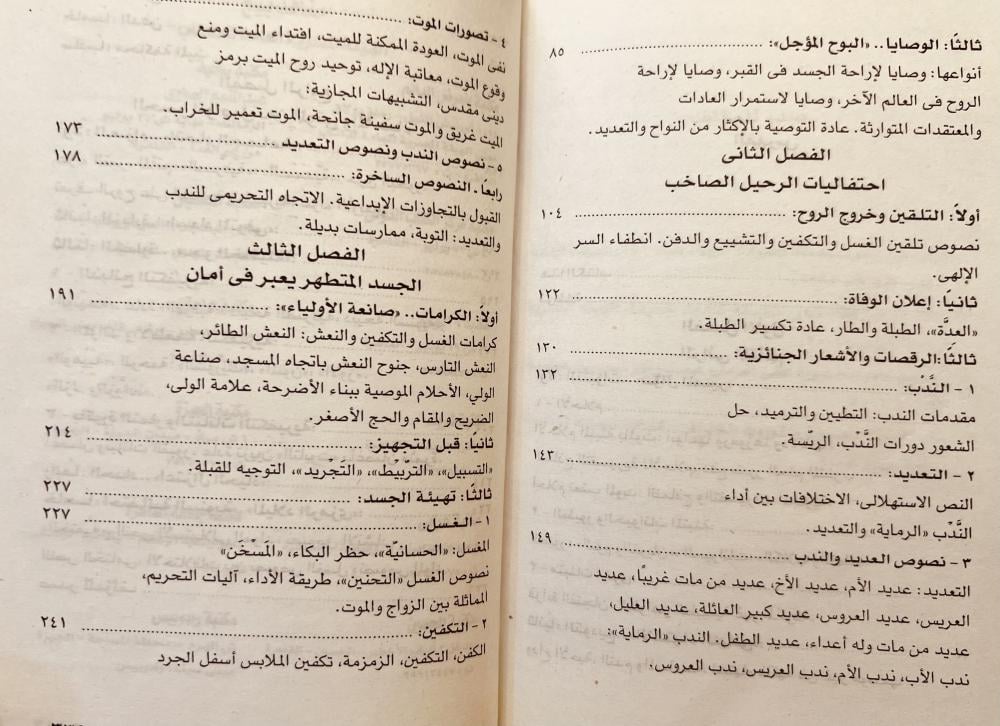 ثالثًا: الوصايا.. «البوح المؤجل»: ٨٥
أنواعها: وصايا لإراحة الجسد فى القبر، وصايا لإراحة
الروح فى العالم الآخر، وصايا لاستمرار العادات
والمعتقدات المتوارثة. عادة التوصية بالإكثار من النواح والتعديد.
الفصل الثانى
احتفاليات الرحيل الصاخب
أولاً: التلقين وخروج الروح: ١٠٤
نصوص تلقين الغسل والتكفين والتشييع والدفن. انطفاء السر
الإلهى.
ثانيًا: إعلان الوفاة: ١٢٢
«العدَّة»، الطبلة والطار، عادة تكسير الطبلة.
ثالثًا: الرقصات والأشعار الجنائزية: ١٣٠
١ - النَّدْب: ١٣٢
مقدمات الندب: التطيين والترميد، حل
الشعور دورات النَّدْب، الريّسة.
٢ - التعديد: ١٤٣
النص الاستهلالى، الاختلافات بين أداء
النَّدْب «الرماية» والتعديد.
٣ - نصوص العديد والندب ١٤٩
التعديد: عديد الأم، عديد الأخ، عديد من مات غريبًا، عديد
العريس، عديد العروس، عديد كبير العائلة، عديد العليل،
عديد من مات وله أعداء، عديد الطفل. الندب «الرماية»:
ندب الأب، ندب الأم، ندب العريس، ندب العروس.
٤ - تصورات الموت:
نفى الموت، العودة الممكنة للميت، افتداء الميت ومنع
وقوع الموت، معاتبة الإله، توحيد روح الميت برمز
دينى مقدس، التشبيهات المجازية:
الميت غريق والموت سفينة جانحة، الموت تعمير للخراب.
٥ - نصوص الندب ونصوص التعديد ١٧٣
رابعاً. النصوص الساخرة: ١٧٨
القبول بالتجاوزات الإبداعية. الاتجاه التحريمى للندب
والتعديد: التوبة، ممارسات بديلة.
الفصل الثالث
الجسد المتطهر يعبر فى أمان
أولاً: الكرامات.. «صانعة الأولياء»: ١٩١
كرامات الغسل والتكفين والنعش: النعش الطائر،
النعش التارس، جنوح النعش باتجاه المسجد، صناعة
الولي، الأحلام الموصية ببناء الأضرحة، علامة الولى،
الضريح والمقام والحج الأصغر.
ثانيًا: قبل التجهيز: ٢١٤
«التسبيل»، «التّربِيْط»، «التجْريد»، التوجيه للقبلة.
ثالثًا: تهيئة الجسد: ٢٢٧
١- الغسل: ٢٢٧
المغسل: «الحسانيّة»، حظر البكاء، «المَسْخَن»
نصوص الغسل «التحنين»، طريقة الأداء، آليات التحريم،
المماثلة بين الزواج والموت.
٢ - التكفين: ٢٤١
الكفن، التكفين، الزمزمة، تكفين الملابس أسفل الجرد